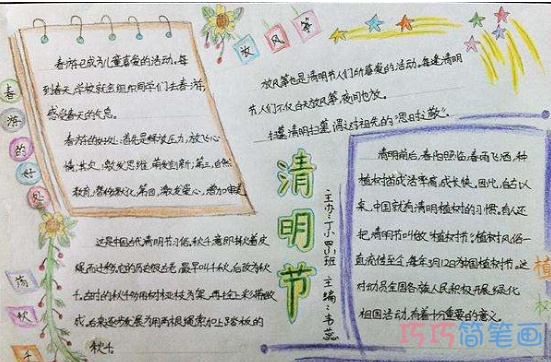 春游的好处
春游已成为儿童喜爱的活动。每
到春天,学校就会组织同学们去春游,
感受春天的气息。
春游的好处:首先是释放压力,放飞心
情;其次,激发思维
教育
放风筝
放风筝也是清明节人们所喜爱的活动。每逢清明
节,人们不仅白天放风筝,夜间也放。
扫墓,清明扫墓,谓之对祖先的“思时之敬”。
清明节
主办:丁小
班
主编:
荡秋千
这是中国古代清明节习俗,秋千意即揪着皮
绳而迁移,它的历史很古老,最早叫千秋,后改为秋
千。古时的秋千多用树枝桠为架,再拴上彩带做
成,后来逐步发展为用两根绳索加上踏板的
秋千
植
清明前后,春阳照临,春雨飞洒,种
植树苗成活率高,成长快。因此,自古以
来,中国就有清明植树的习惯。有人还
把清明节叫做“植树节”。植树风俗一
直流传至今,每年3月12日为我国植树节。这
对动员全国各族人民积极开展绿化
祖国活动,有着十分重要的意义。
巧巧简笔画